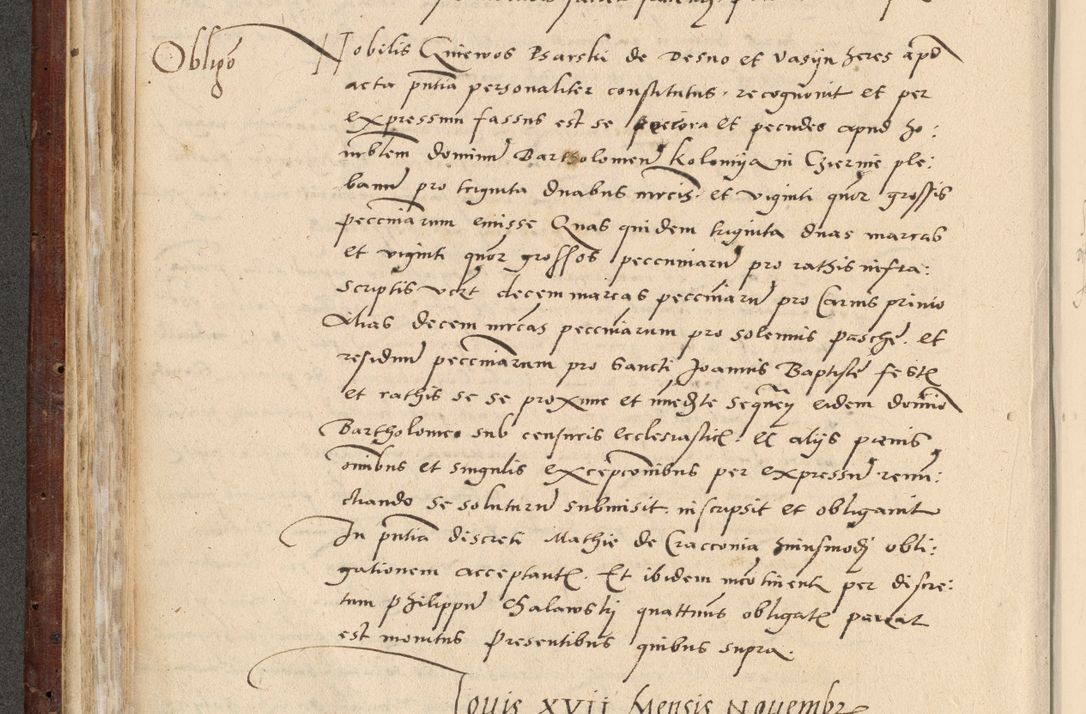 Obligo
Nobilis Gniewos Psarski de Desno et Vasyn heres apd
acta pntia personaliter constitutus. recognouit et per
expressum fassus est se pecora et pecudes apud ho:
nrblem dominu Bartholomeu Koloniya in Czernie ple:
banu pro triginta duabus mrcis. et viginti quor grossis
pecciniarum emisse Quas quidem triginta duas marcas
et viginti quor grossos pecciniaru pro rathis infra:
scriptis vclt decem marcas pecciniaru pro Carnis priuio
Alias decem mrcas pecciniarum pro solemnis Pasche. et
residuu pecciniarum pro Sancti Joannis Baptiste festo
et rathis se se proxime et imedte sequen eidem domino
Bartholomeo sub censuris ecclesiasticis et alijs penis
omibus et singulis excepconibus per expressu renu:
ctiando se soluturu submisit. inscripsit et obligauit
In pntia discreti Mathie de Cracouia huiusmodi obli:
gationem acceptantis. Et ibidem incontinenti per discre:
tum Philippu Chalawskij quattmus obligatis pareat
est monitus Presentibus quibus supra.
Jouis XVII Mensis Nouembr